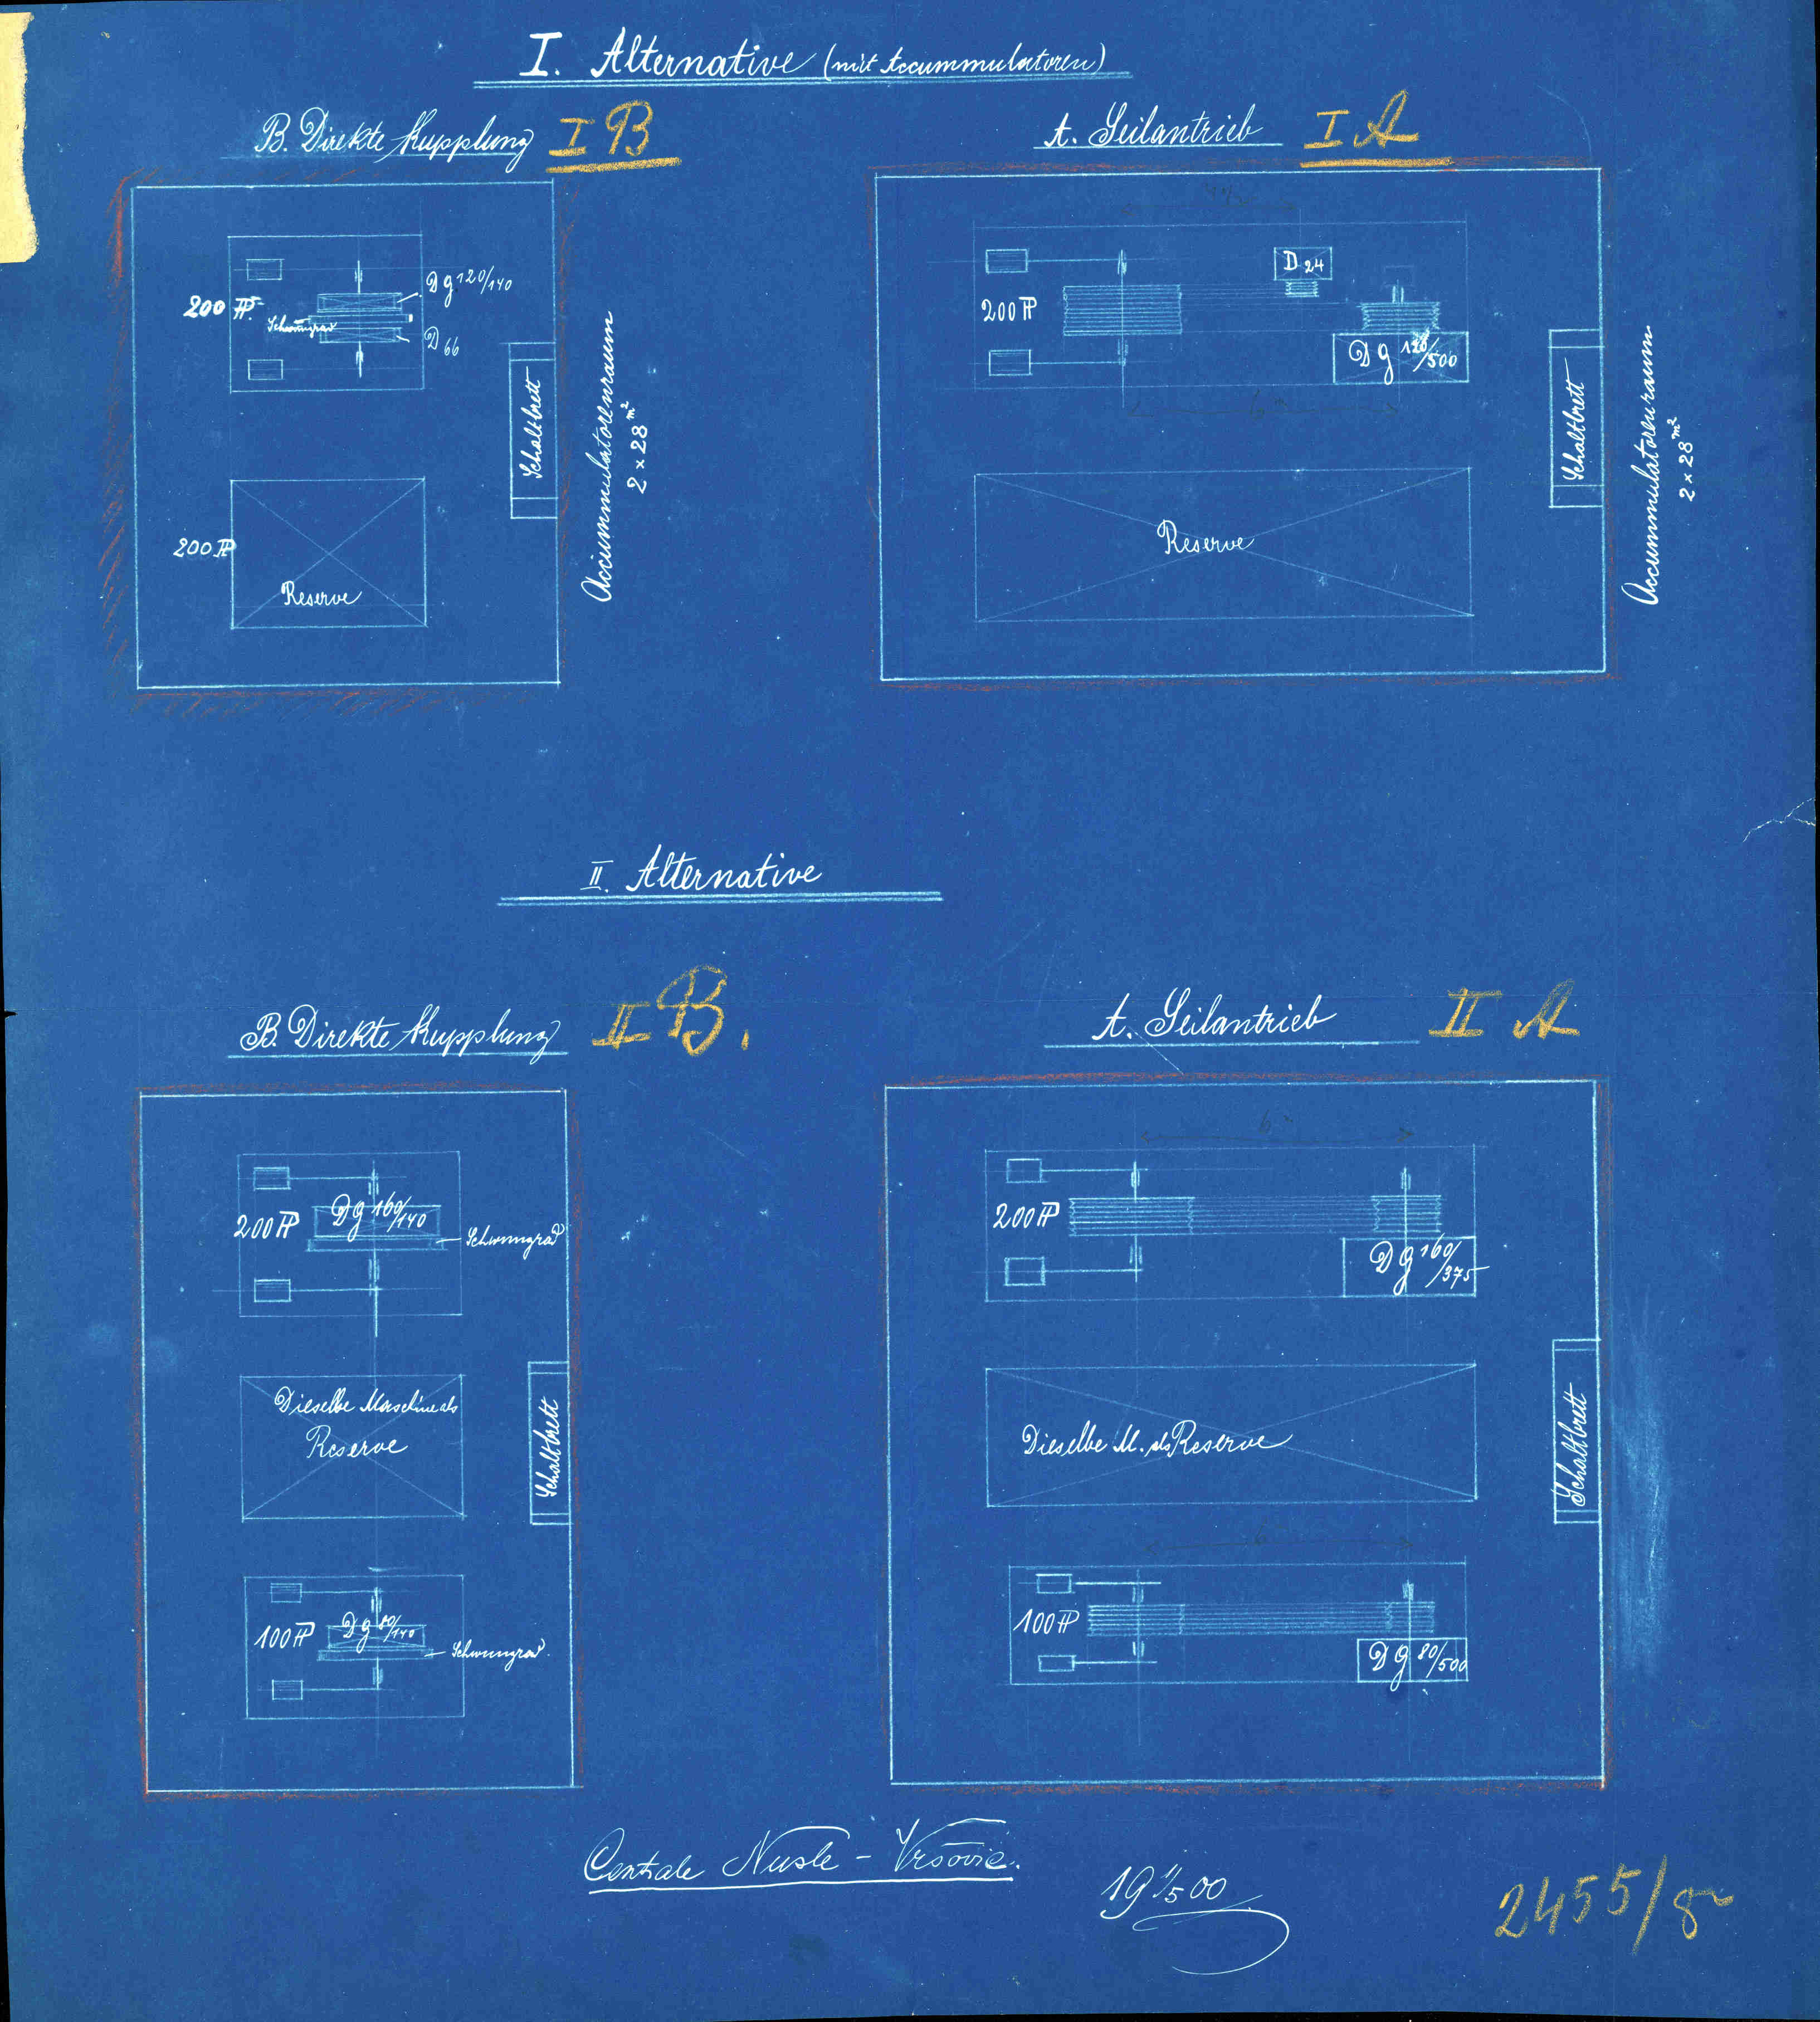 I. Alternative (mit Accummulatoren)
B. Direkte Kupplung I B
200 HP
Dg 120/140
Schwungrad
D 66
Schaltbrett
Accummulatorenraum
2 × 28 m²
200 HP
Reserve
A. Seilantrieb I A
200 HP
D 24
Dg 120/500
6 m
Schaltbrett
Accummulatorenraum
2 × 28 m²
Reserve
II. Alternative
B. Direkte Kupplung II B.
200 HP
Dg 160/140
Schwungrad
Dieselbe Maschine als
Reserve
Schaltbrett
100 HP
Dg 80/140
Schwungrad
A. Seilantrieb II A
6 m
200 HP
Dg 160/375
Dieselbe M. als Reserve
Schaltbrett
6 m
100 HP
Dg 80/500
Centrale Nusle - Vršovic.
19 1/5 00
2455/8